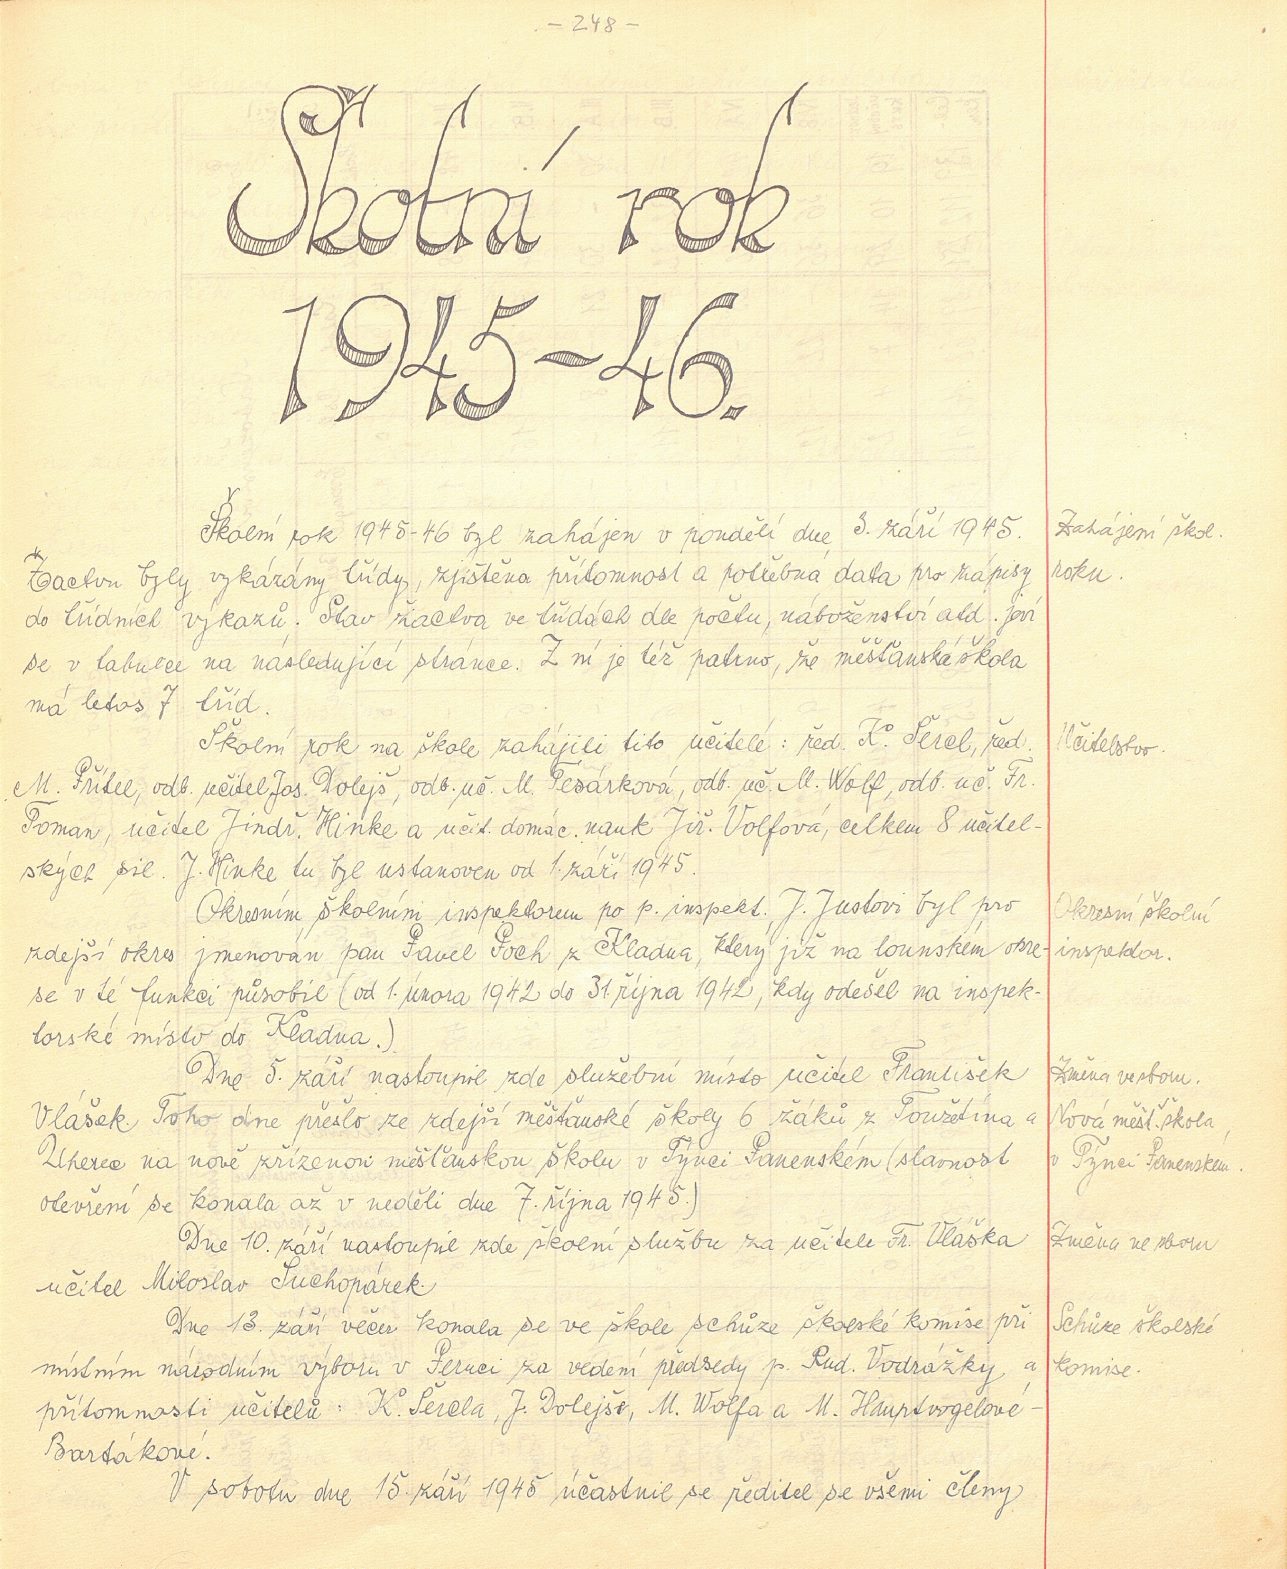 - 248 -
Školní rok
1945-46.
Školní rok 1945-46 byl zahájen v pondělí dne 3. září 1945.
Zahájení škol.
Žactvu byly vykázány třídy, zjištěna přítomnost a potřebná data pro zápisy
roku.
do třídních výkazů. Stav žactva ve třídách dle počtu, náboženství atd. jeví
se v tabulce na následující stránce. Z ní je též patrno, že měšťanská škola
má letos 7 tříd.
Školní rok na škole zahájili tito učitelé: řed. K. Šercl, řed.
Učitelstvo.
M. Přítel, odb. učitel Jos. Dolejš, odb. uč. M. Tesárková, odb. uč. M. Wolf, odb. uč. Fr.
Toman, učitel Jindř. Hinke a učit. domác. nauk Jiř. Volfová, celkem 8 učitel-
ských sil. J. Hinke tu byl ustanoven od 1. září 1945.
Okresním školním inspektorem po p. inspekt. J. Justovi byl pro
Okresní školní
zdejší okres jmenován pan Pavel Poch z Kladna, který již na lounském okre-
inspektor.
se v té funkci působil (od 1. února 1942 do 31. října 1942, kdy odešel na inspek-
torské místo do Kladna.)
Dne 5. září nastoupil zde služební místo učitel František
Změna ve sboru.
Vlášek. Toho dne přešlo ze zdejší měšťanské školy 6 žáků z Toužetína a
Nová měšť. škola
Úherec na nově zřízenou měšťanskou školu v Týnci Panenském (slavnost
v Týnci Panenském.
otevření se konala až v neděli dne 7. října 1945.)
Dne 10. září nastoupil zde školní službu za učitele Fr. Vláška
Změna ve sboru
učitel Miloslav Suchopárek.
Dne 13. září večer konala se ve škole schůze školské komise při
Schůze školské
místním národním výboru v Peruci za vedení předsedy p. Rud. Vodrážky a
komise.
přítomnosti učitelů: K. Šercla, J. Dolejše, M. Wolfa a M. Hauptvogelové-
Bartákové.
V sobotu dne 15. září 1945 účastnil se ředitel se všemi členy